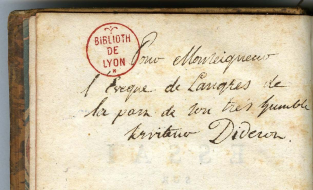 BIBLIOTH
DE
LYON
Pour Monseigneur
l'Eveque de Langres de
la part de son tres humble
serviteur Dideron.